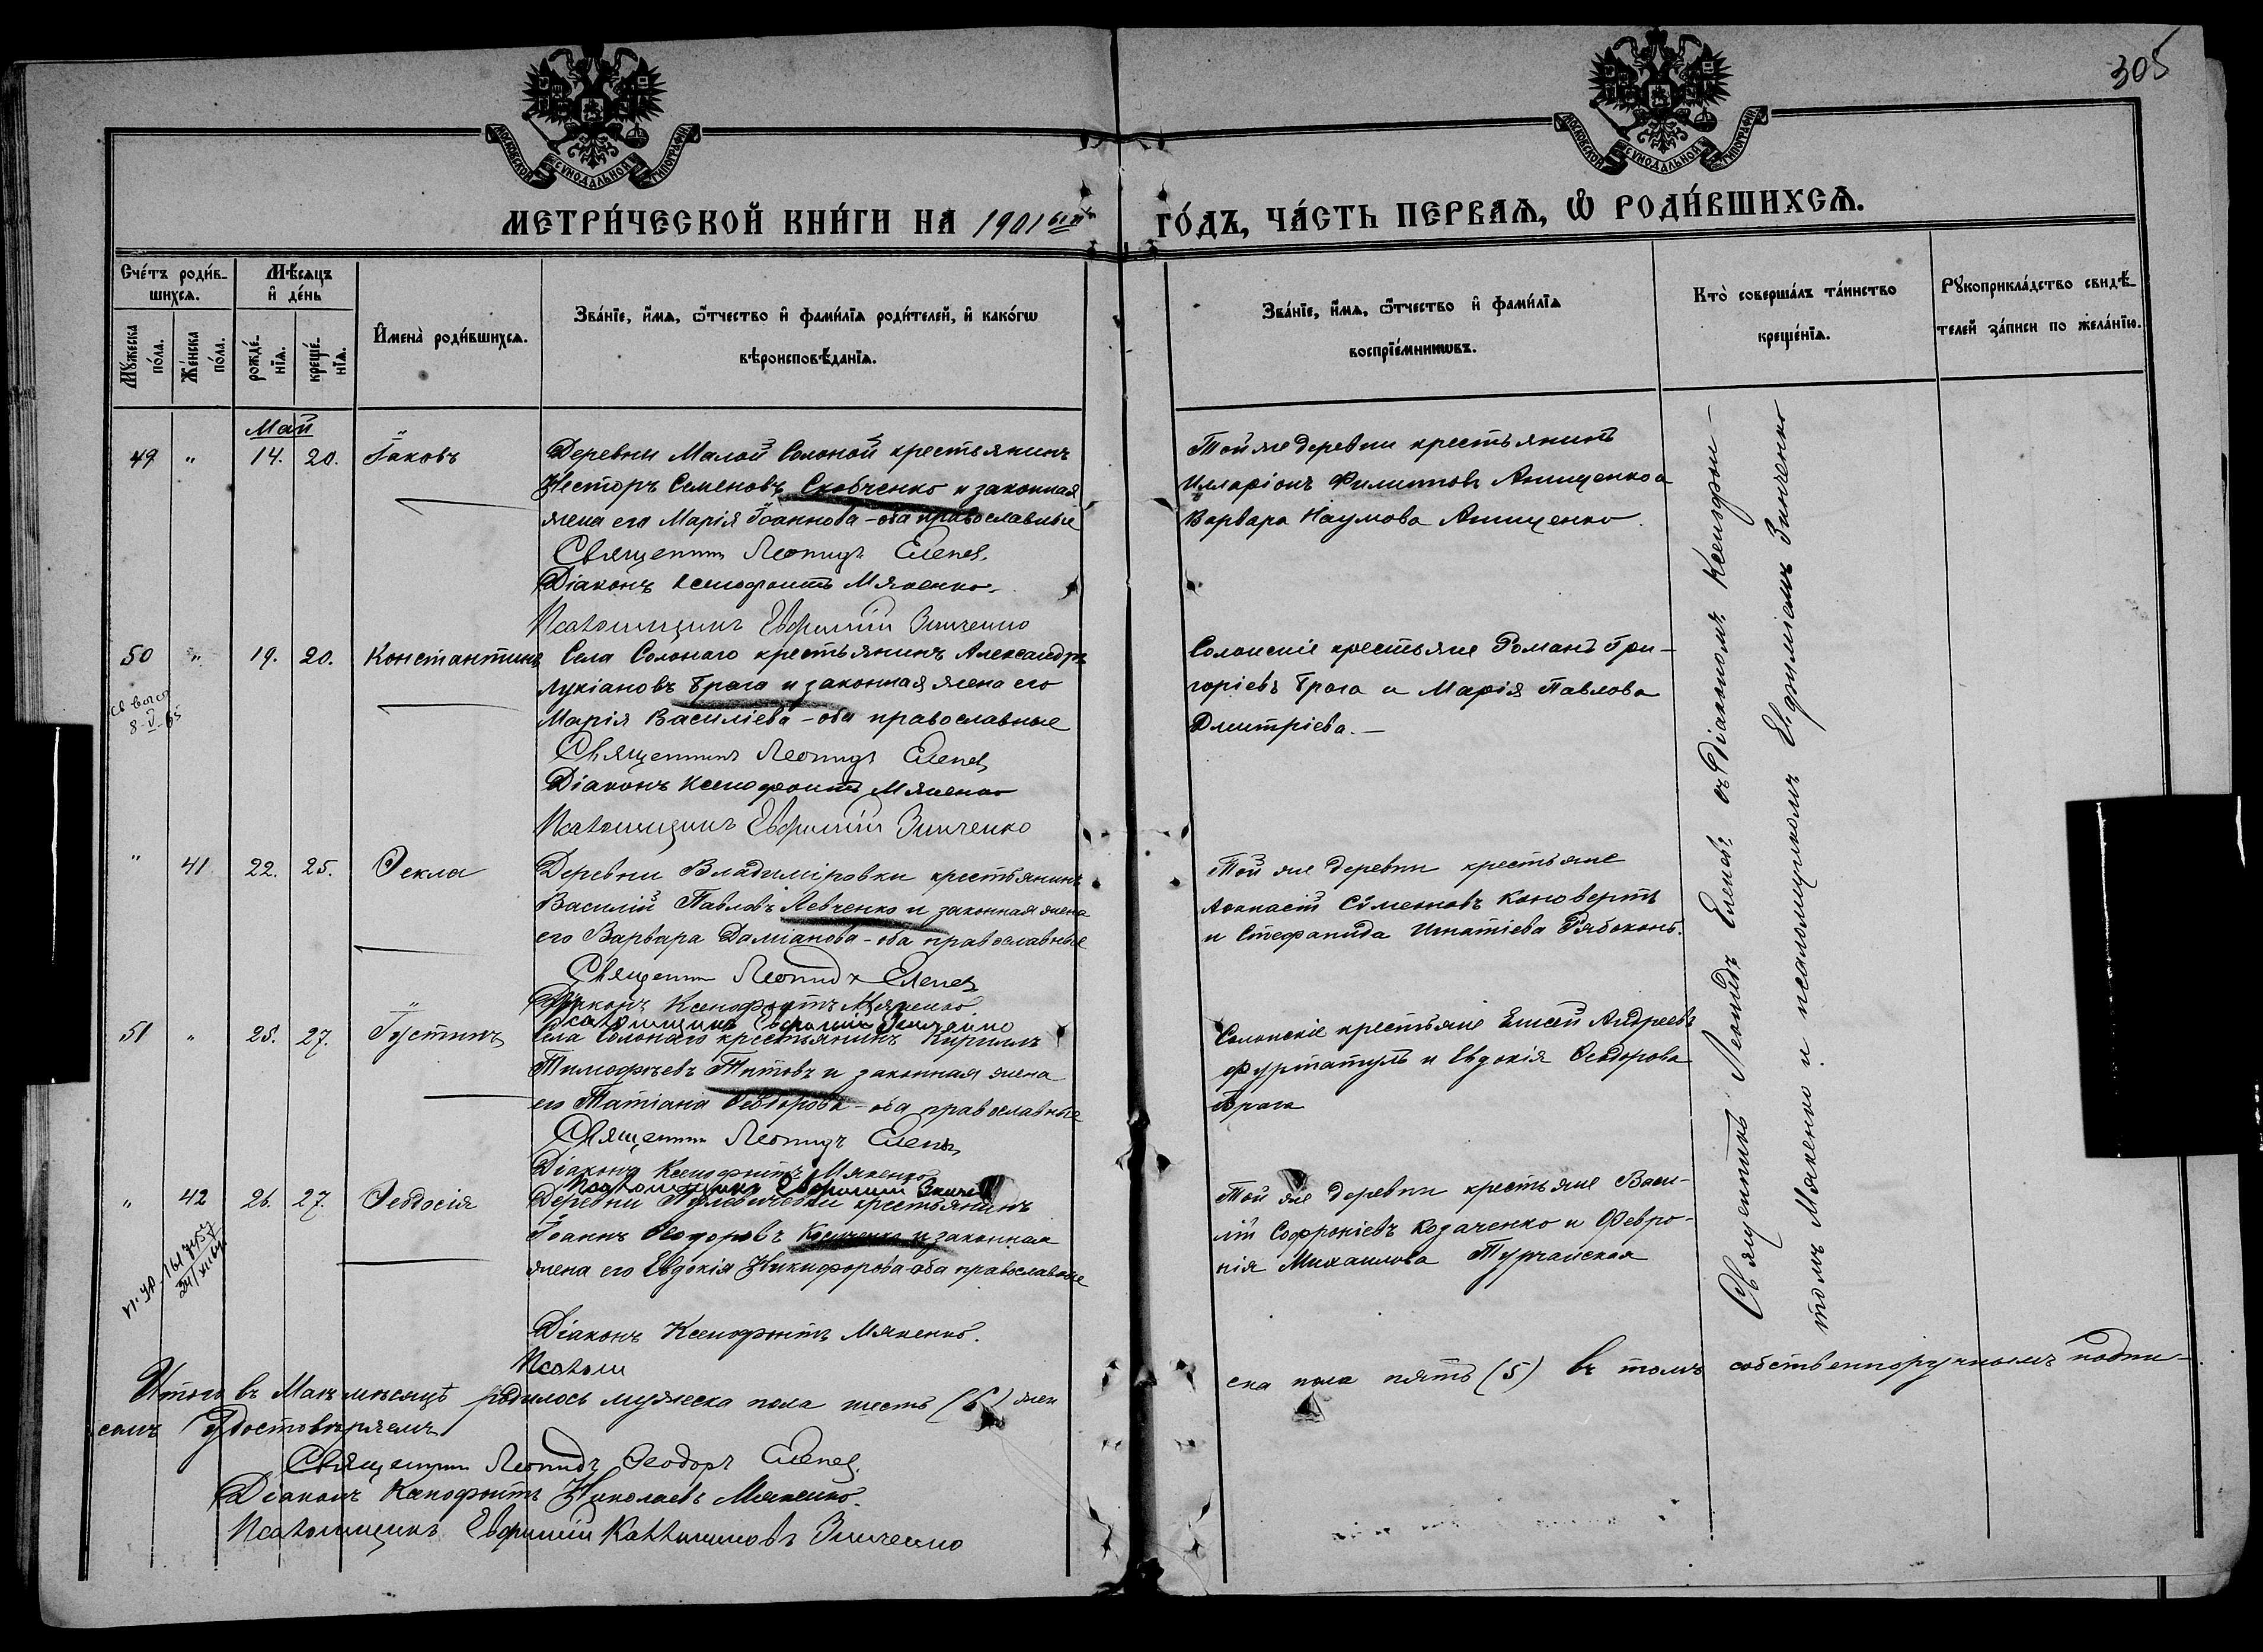 305
МОСКОВСКОЙ СѴНОДАЛЬНОЙ ТИПОГРАФІИ
МОСКОВСКОЙ СѴНОДАЛЬНОЙ ТИПОГРАФІИ
МЕТРИ́ЧЕСКОЙ КНИ́ГИ НА 1901ый ГО́ДЪ, ЧА́СТЬ ПЕРВАѦ, Ѡ҆ РОДИ́ВШИХСѦ.
Счéтъ роди́в-
шихсѧ.
Мꙋ́жеска по́ла.
Же́нска по́ла.
Мѣ́сѧцъ
и҆ де́нь
рожде́-нїѧ.
креще́-нїѧ.
И҆мена̀ роди́вшихсѧ.
Зва́нїе, и҆́мѧ, ѻ҆́тчество и҆ фами́лїѧ роди́телей, и҆ како́гѡ
вѣроисповѣ́данїѧ.
Зва́нїе, и҆́мѧ, ѻ҆́тчество и҆ фами́лїѧ
воспрїе́мникѡвъ.
Кто̀ соверша́лъ та́инство
креще́нїѧ.
Рꙋкоприкла́дство свидѣ́-
телей за́писи по жела́нїю.
Май
49 " 14. 20. Іаковъ
Деревни Малой Солоной крестьянинъ
Несторъ Семеновъ Скобченко и законная
жена его Марія Іоаннова - оба православные
Священникъ Леонидъ Еленев
Діаконъ Ксенофонтъ Мякенко
Псаломщикъ Евфимій Зинченко
Той же деревни крестьянинъ
Илларіонъ Филиповъ Анищенко и
Варвара Наумова Анищенко.
50 " 19. 20. Константинъ
8-V-65
Села Солонаго крестьянинъ Александръ
Лукіановъ Брага и законная жена его
Марія Василіева - оба православные
Священникъ Леонидъ Еленев
Діаконъ Ксенофонтъ Мякенко
Псаломщикъ Евфимій Зинченко
Солонскіе крестьяне Романъ Гри-
горіевъ Брага и Марія Павлова
Дмитріева. -
" 41 22. 25. Ѳекла
Деревни Владиміровки крестьянинъ
Василій Павловъ Левченко и законная жена
его Варвара Даміанова - оба православные
Священникъ Леонидъ Еленев
Діаконъ Ксенофонтъ Мякенко
Псаломщикъ Евфимій Зинченко
Той же деревни крестьяне
Аѳанасій Сѵмеоновъ Коновертъ
и Стефанида Игнатіева Рябоконь.
51 " 25. 27. Іустинъ
Села Солонаго крестьянинъ Кириллъ
Тимофѣевъ Титовъ и законная жена
его Татіана Ѳеодорова - оба православные
Священникъ Леонидъ Еленев
Діаконъ Ксенофонтъ Мякенко
Псаломщикъ Евфимій Зинче
Солонскіе крестьяне Елисей Андреевъ
Фуртатулъ и Евдокія Ѳеодорова
Брага
" 42 26. 27. Ѳеодосія
Деревни крестьянинъ
Іоаннъ Ѳеодоровъ и законная
жена его Евдокія Никифорова - оба православные
Діаконъ Ксенофонтъ Мякенко.
Псалом
Той же деревни крестьяне Васи-
лій Софроніевъ Козаченко и Февро-
нія Михаилова Турчанская
Священникъ Леонидъ Еленевъ съ діакономъ Ксенофон-
томъ Мякенко и псаломщикомъ Евфиміемъ Зинченко
Итого въ Маѣ мѣсяцѣ родилось мужеска пола шесть (6) жен
ска пола пять (5) въ томъ собственноручнымъ подпи-
сомъ удостовѣряемъ
Священникъ Леонидъ Ѳеодоръ Еленев
Діаконъ Ксенофонтъ Николаевъ Мякенко.
Псаломщикъ Евфимій Каллиниковъ Зинченко